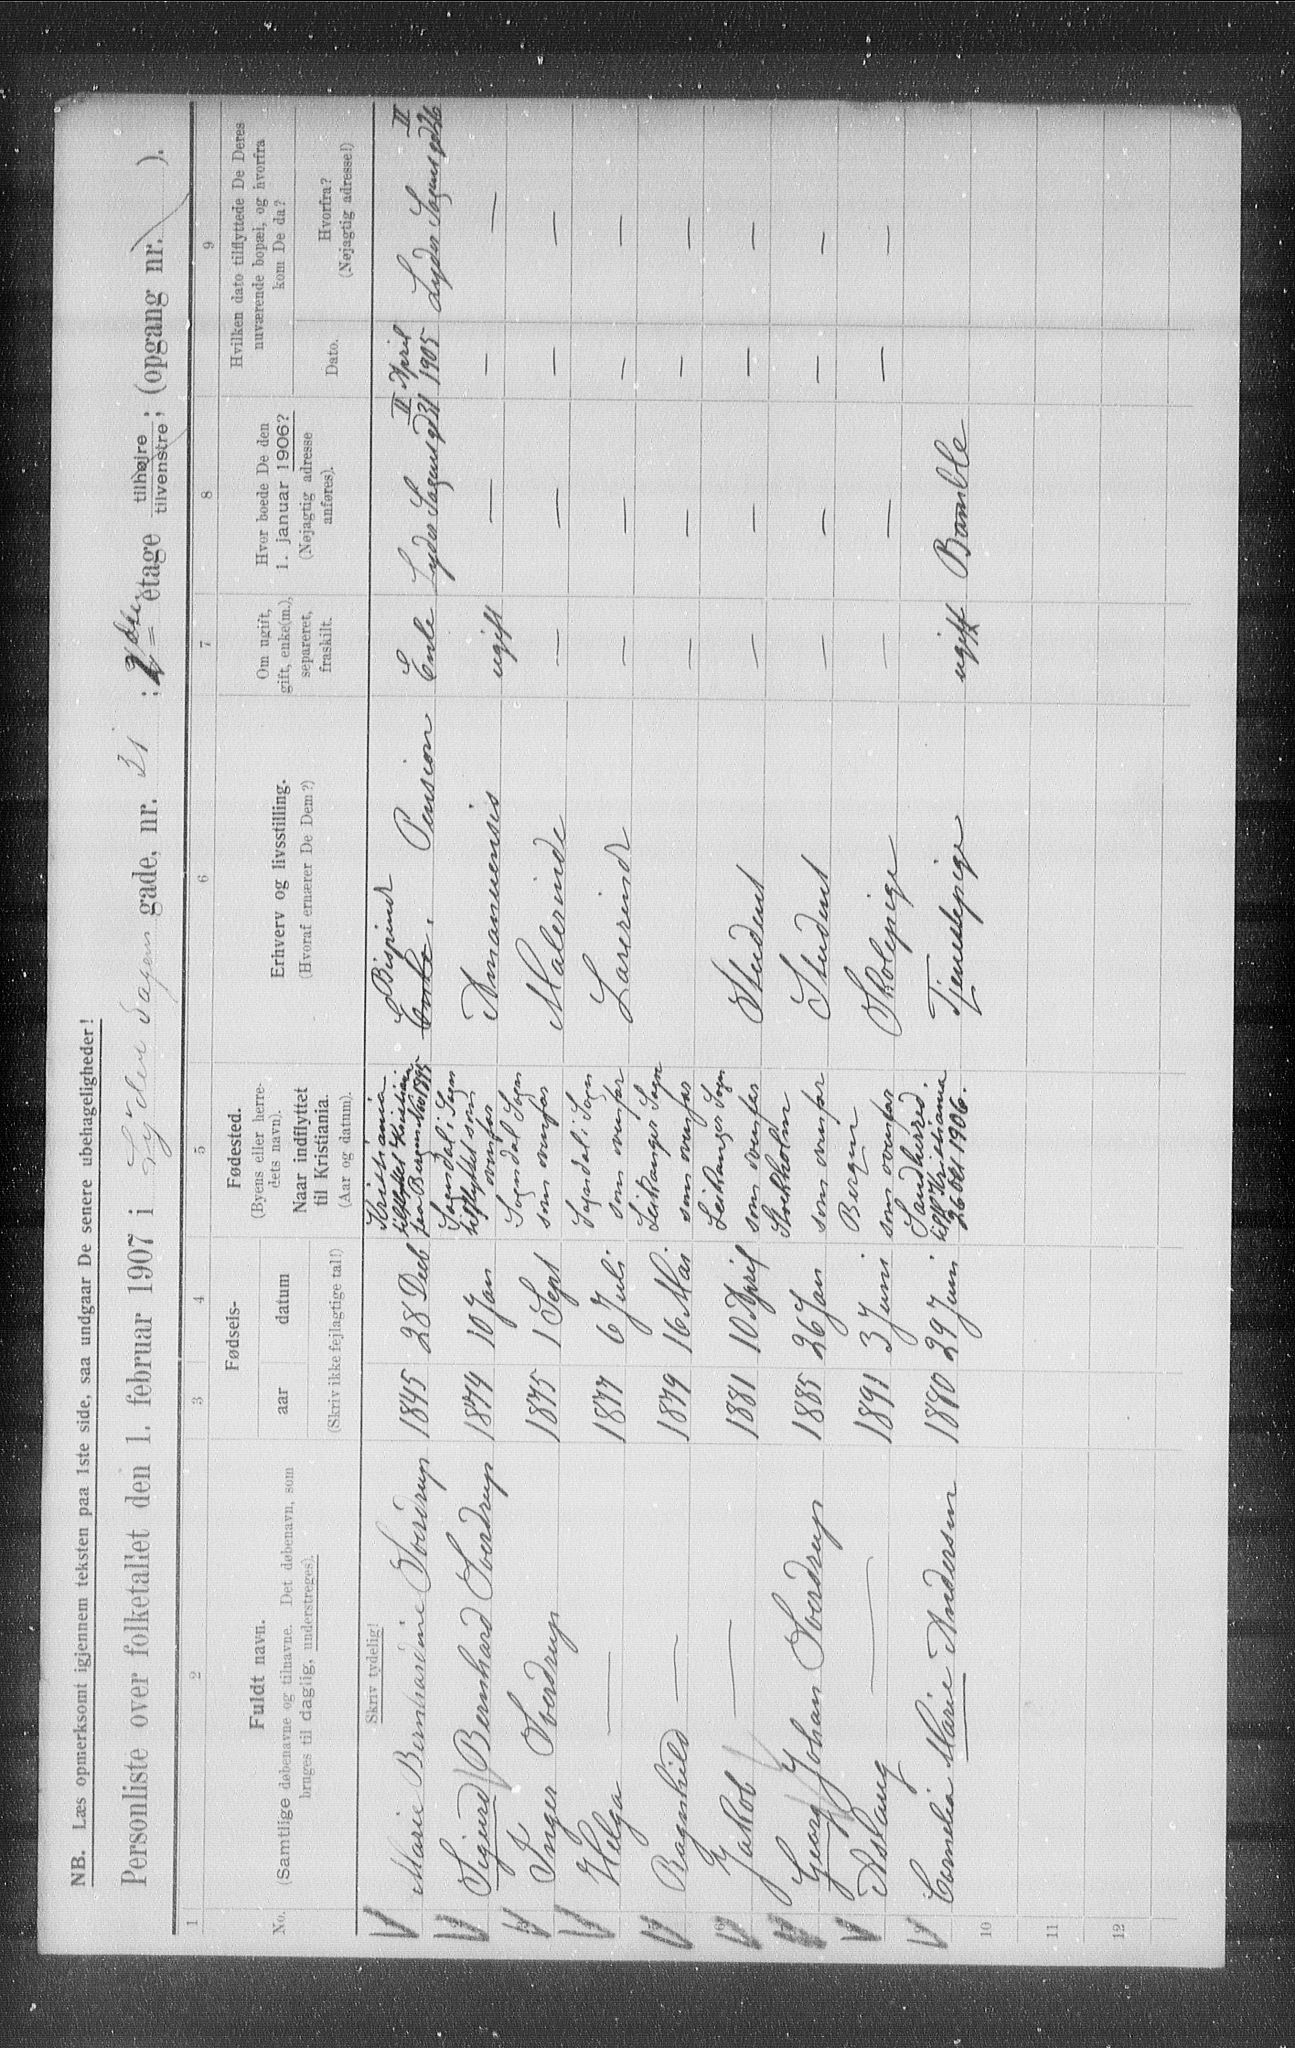 NB. Læs opmerksomt igjennem teksten paa 1ste side, saa undgaar De senere ubehageligheder!
Personliste over folketallet den 1. februar 1907 i Lyder Sagens gade, nr. 31 ; 2den etage tilhøjre tilvenstre; (opgang nr. ).
1 2 3 4 5 6 7 8 9
No.
Fuldt navn.
(Samtlige døbenavne og tilnavne. Det døbenavn, som
bruges til daglig, understreges).
Fødsels-
aar datum
(Skriv ikke fejlagtige tal!)
Fødested.
(Byens eller herre-
dets navn).
Naar indflyttet
til Kristiania.
(Aar og datum).
Erhverv og livsstilling.
(Hvoraf ernærer De Dem?)
Om ugift,
gift, enke(m.),
separeret,
fraskilt.
Hvor boede De den
1. januar 1906?
(Nøjagtig adresse
anføres).
Hvilken dato tilflyttede De Deres
nuværende bopæl, og hvorfra
kom De da?
Dato.
Hvorfra?
(Nøjagtig adresse!)
Skriv tydelig!
Marie Bernhardine Sverdrup 1845 28 Decb Kristiania tilflyttet Kristiania fra Bergen Nov 1895 Bispinde Enke. Pension Enke Lyder Sagens gd 31 II April 1905 Lyder Sagens gd 26 II
Sigurd Bernhard Sverdrup 1874 10 Jan Sogndal i Sogn tilflyttet som ovenfor Amanuensis ugift — — —
Inger Sverdrup 1875 1 Sept Sogndal Sogn som ovenfor Malerinde — — — —
Helga — 1877 6 Juli Sogndal i Sogn som ovenfor Lærerinde — — — —
Ragnhild — 1879 16 Mai Leikanger Sogn som ovenfor — — — —
Jakob — 1881 10 April Leikanger Sogn som ovenfor Student — — — —
Georg Johan Sverdrup 1885 26 Jan Stokholm som ovenfor Student — — — —
Aslaug — 1891 3 Juni Bergen som ovenfor Skolepige — — — —
9 Cornelia Marie Andersen 1880 29 Juni Sandherred. till. Kristiania 26 Okt 1906. Tjenestepige ugift Bamble
10
11
12